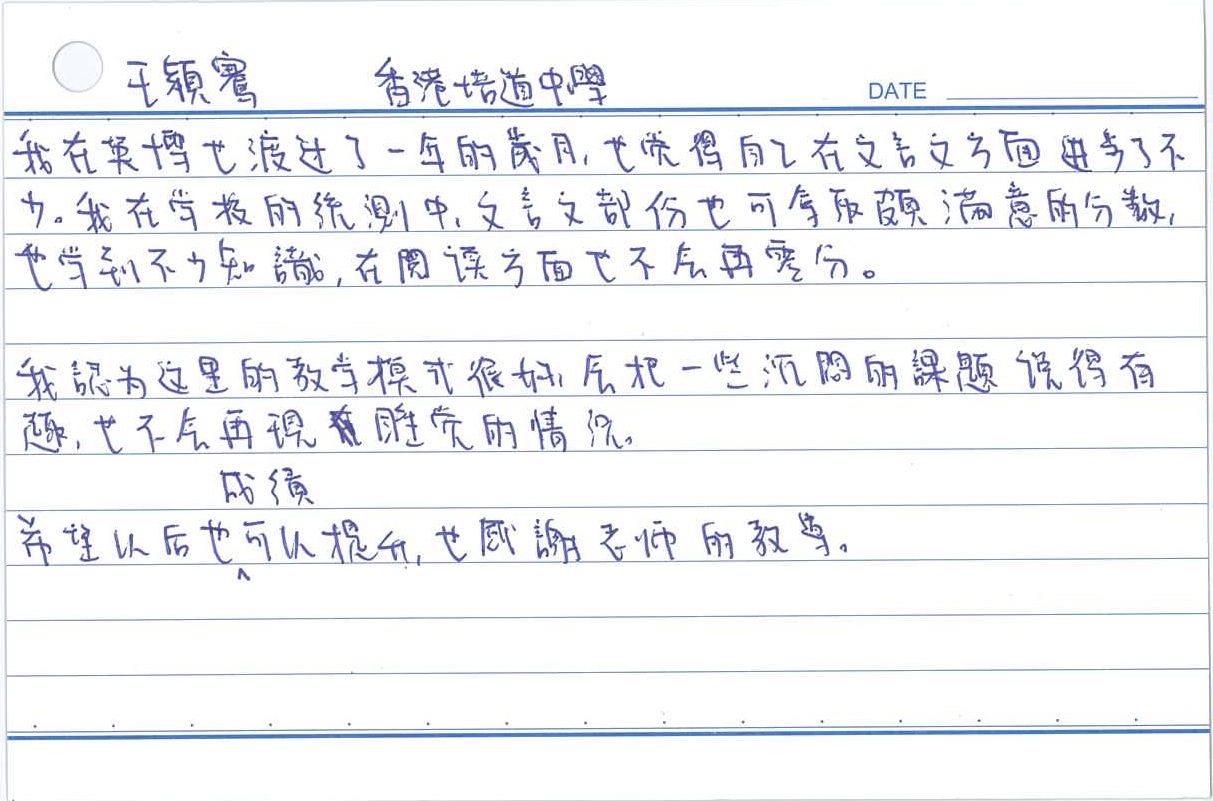 王穎騫 香港培道中學
DATE
我在英博也渡过了一年的歲月,也覚得自己在文言文方面進步了不
少。我在学校的統測中,文言文部份也可拿取頗滿意的分數,
也学到不少知識,在閱读方面也不会再零分。
我認为这里的教学模式很好,会把一些沉悶的課題說得有
趣,也不会再現睡覚的情況。
成績
希望以后也可以提升,也感謝老师的教导。